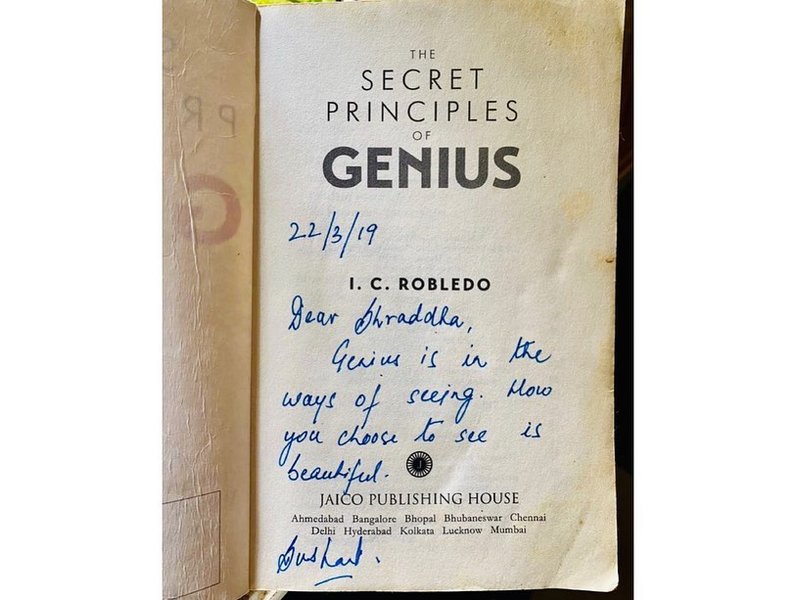 THE
SECRET
PRINCIPLES
OF
GENIUS
22/3/19
I. C. ROBLEDO
Dear Shraddha,
Genius is in the
ways of seeing. How
you choose to see is
beautiful.
JAICO PUBLISHING HOUSE
Ahmedabad Bangalore Bhopal Bhubaneswar Chennai
Delhi Hyderabad Kolkata Lucknow Mumbai